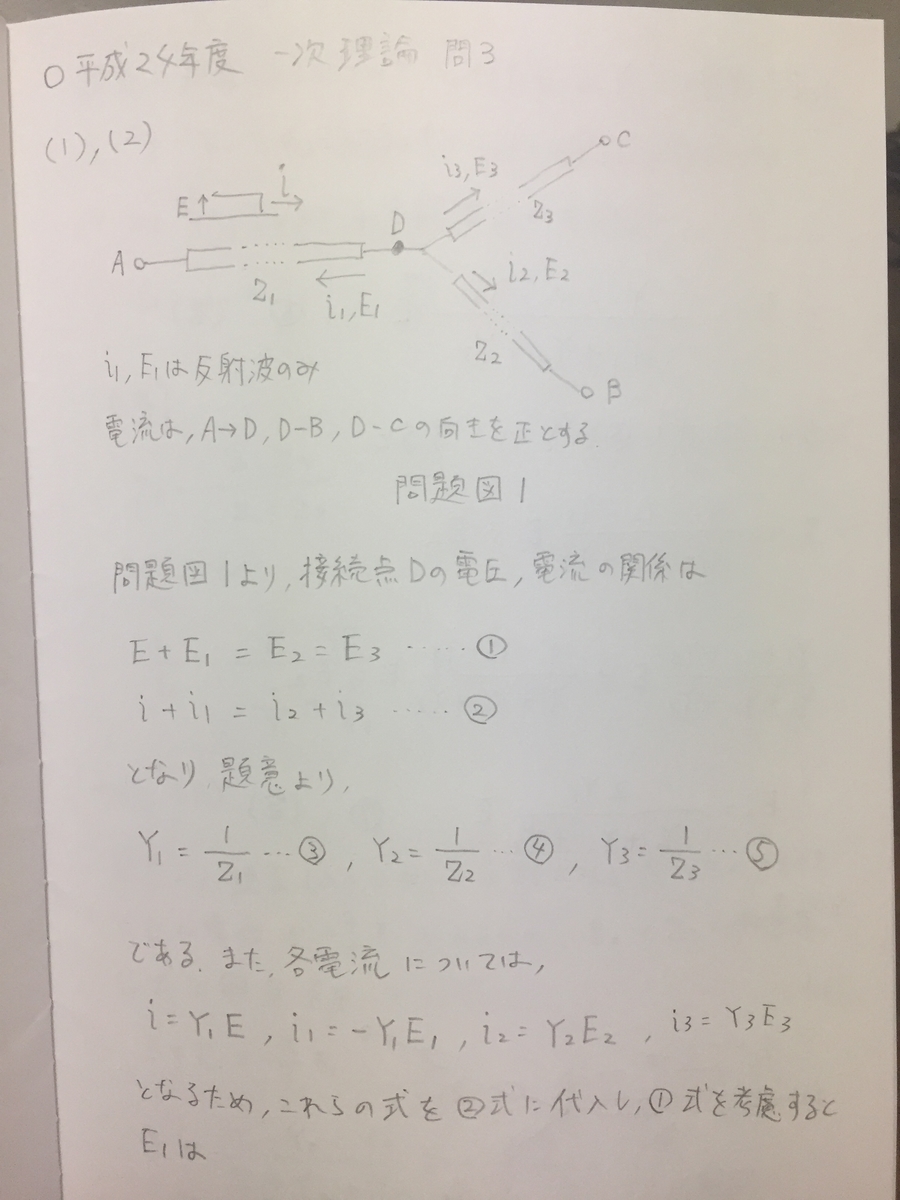 ○平成24年度 一次 理論 問3
(1),(2)
i3,E3
C
E
i
Z3
D
A
Z1
i1,E1
i2,E2
Z2
B
i1,E1は反射波のみ
電流は,A→D,D-B,D-Cの向きを正とする.
問題図1
問題図1より,接続点Dの電圧,電流の関係は
E+E1 = E2 = E3 ····· ①
i+i1 = i2+i3 ····· ②
となり 題意より,
Y1 = 1/Z1 ··· ③ , Y2 = 1/Z2 ··· ④ , Y3 = 1/Z3 ··· ⑤
である. また, 各電流については,
i=Y1E , i1=-Y1E1 , i2=Y2E2 , i3=Y3E3
となるため,これらの式を②式に代入し,①式を考慮すると
E1は